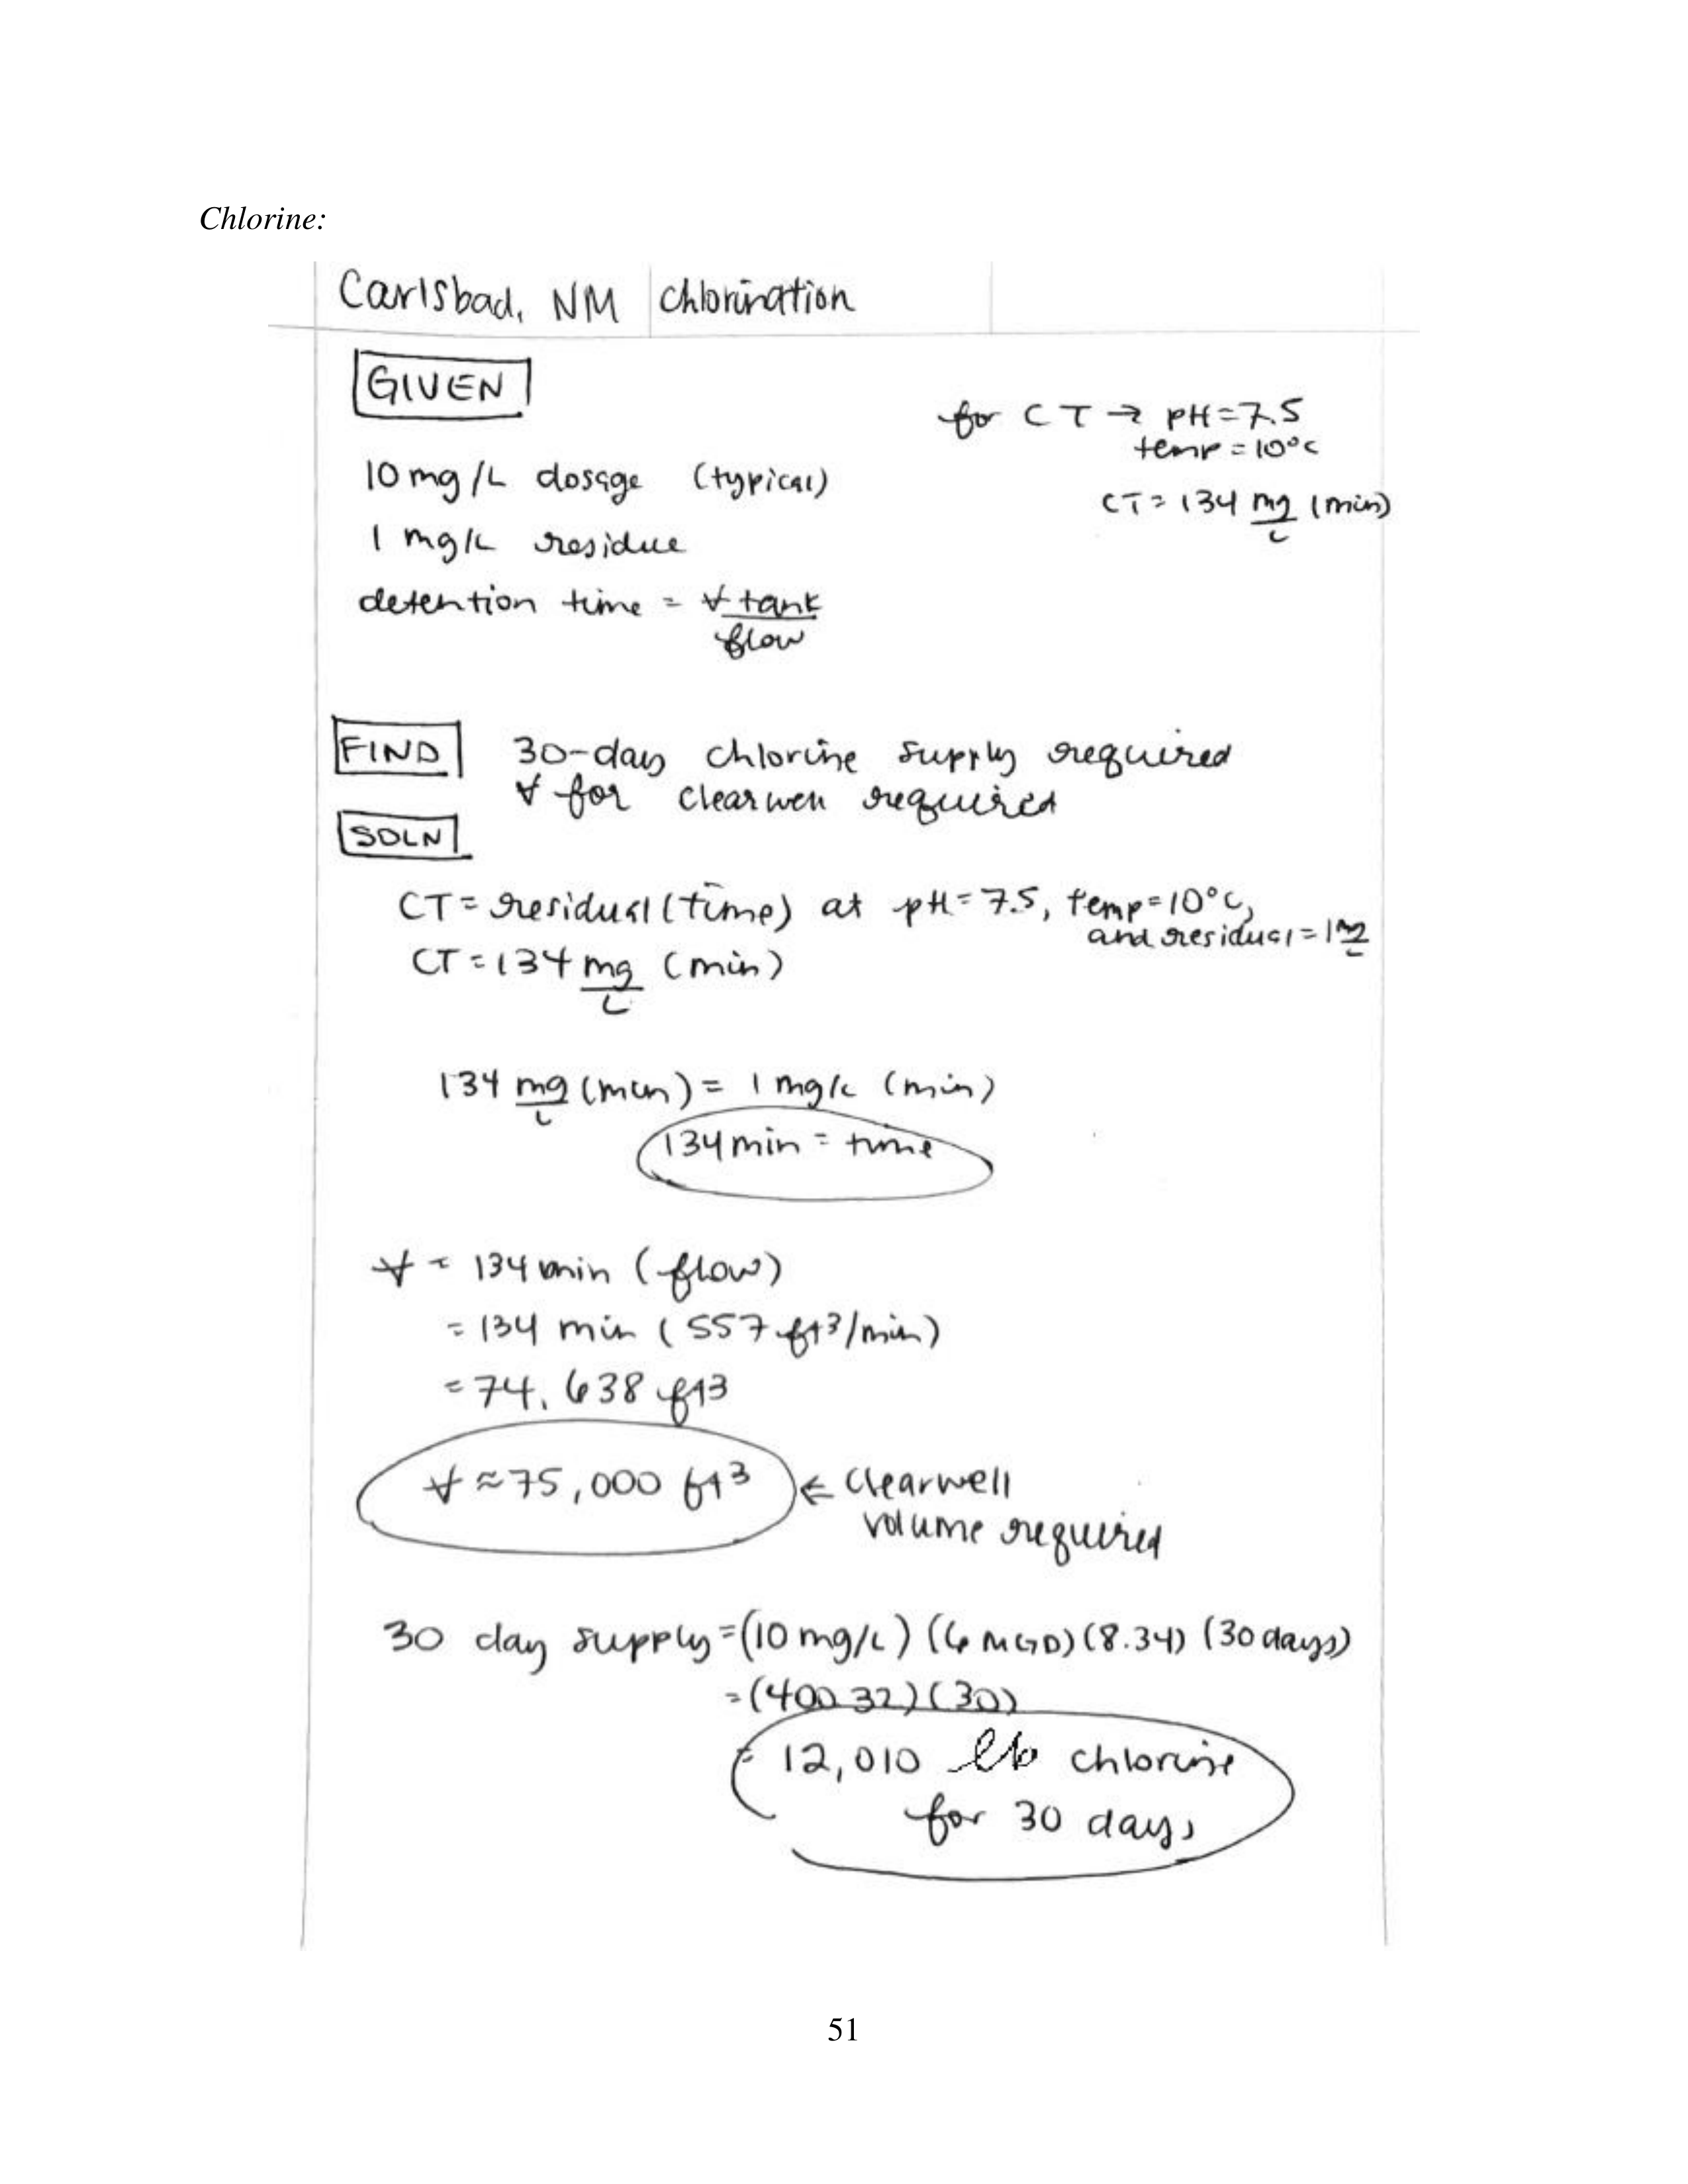 Chlorine:
Carlsbad, NM | Chlorination
GIVEN
for CT → pH=7.5
temp = 10°C
10 mg/L dosage (typical)
CT = 134 mg/L (min)
1 mg/L residue
detention time = V tank / flow
FIND 30-day chlorine supply required
V for clearwell required
SOLN
CT = residual (time) at pH = 7.5, temp = 10°C,
and residual = 1 mg/L
CT = 134 mg/L (min)
134 mg/L (min) = 1 mg/L (min)
134 min = time
V = 134 min (flow)
= 134 min (557 ft3/min)
= 74,638 ft3
V ≈ 75,000 ft3 ← Clearwell
volume required
30 day supply = (10 mg/L) (6 MGD) (8.34) (30 days)
= (400.32) (30)
= 12,010 lb chlorine
for 30 days
51